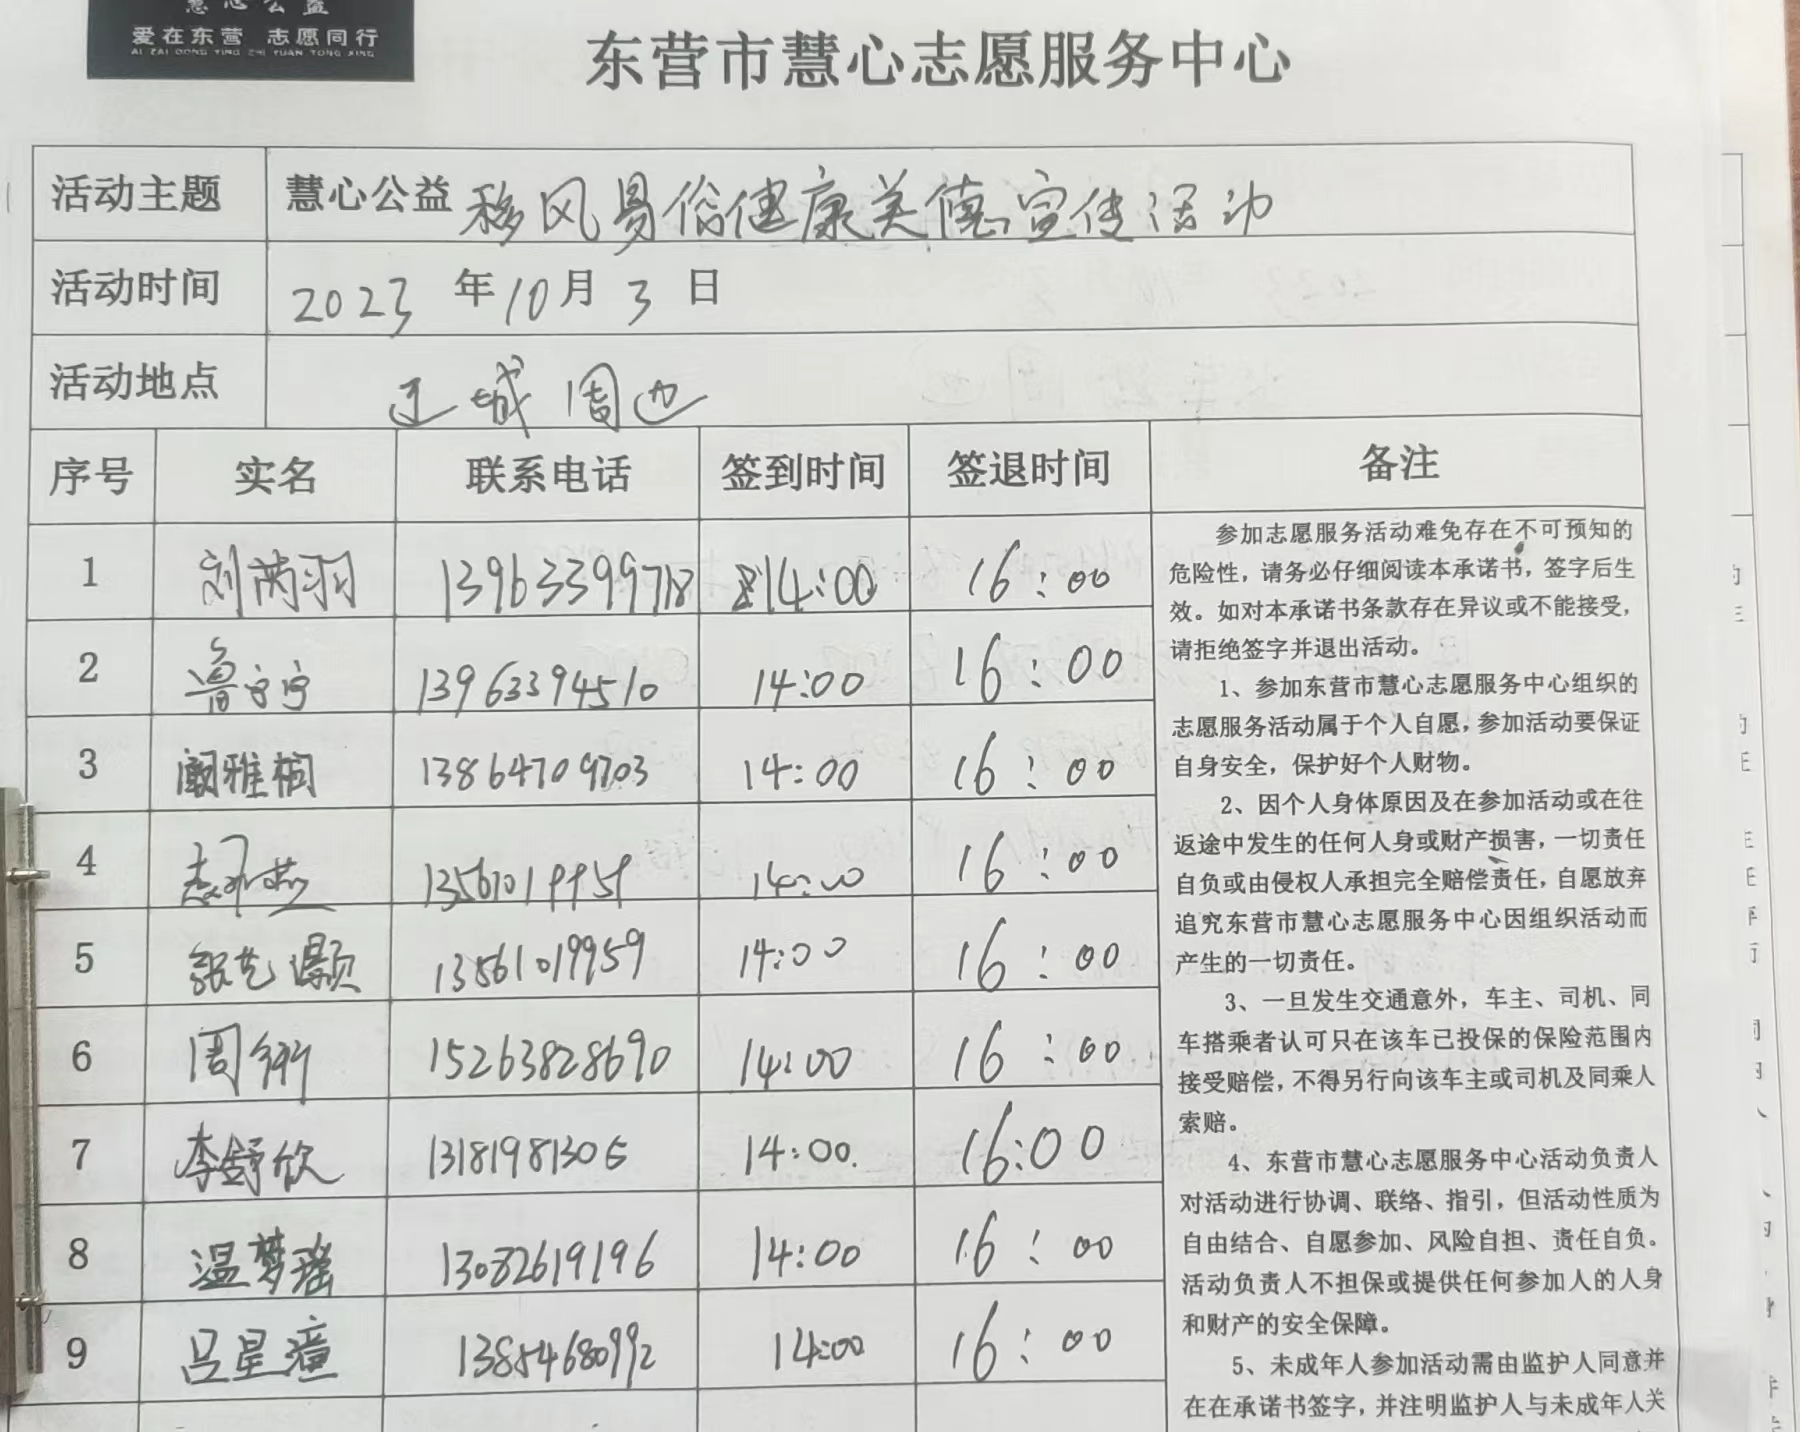 慧心公益
爱在东营 志愿同行
AI ZAI DONG YING ZHI YUAN TONG XING
东营市慧心志愿服务中心
活动主题 慧心公益 移风易俗健康美德宣传活动
活动时间 2023 年 10 月 3 日
活动地点 城周边
序号 实名 联系电话 签到时间 签退时间 备注
1 刘芮羽 13963399718 14:00 16:00
2 鲁 13963394510 14:00 16:00
3 阚雅桐 13864709703 14:00 16:00
4 13561019959 14:00 16:00
5 张艺灏 13561019959 14:00 16:00
6 周衍 15263828690 14:00 16:00
7 李舒欣 13181981306 14:00 16:00
8 温梦瑶 13082619196 14:00 16:00
9 吕星潼 13854680992 14:00 16:00
参加志愿服务活动难免存在不可预知的
危险性，请务必仔细阅读本承诺书，签字后生
效。如对本承诺书条款存在异议或不能接受，
请拒绝签字并退出活动。
1、参加东营市慧心志愿服务中心组织的
志愿服务活动属于个人自愿，参加活动要保证
自身安全，保护好个人财物。
2、因个人身体原因及在参加活动或在往
返途中发生的任何人身或财产损害，一切责任
自负或由侵权人承担完全赔偿责任，自愿放弃
追究东营市慧心志愿服务中心因组织活动而
产生的一切责任。
3、一旦发生交通意外，车主、司机、同
车搭乘者认可只在该车已投保的保险范围内
接受赔偿，不得另行向该车主或司机及同乘人
索赔。
4、东营市慧心志愿服务中心活动负责人
对活动进行协调、联络、指引，但活动性质为
自由结合、自愿参加、风险自担、责任自负。
活动负责人不担保或提供任何参加人的人身
和财产的安全保障。
5、未成年人参加活动需由监护人同意并
在在承诺书签字，并注明监护人与未成年人关